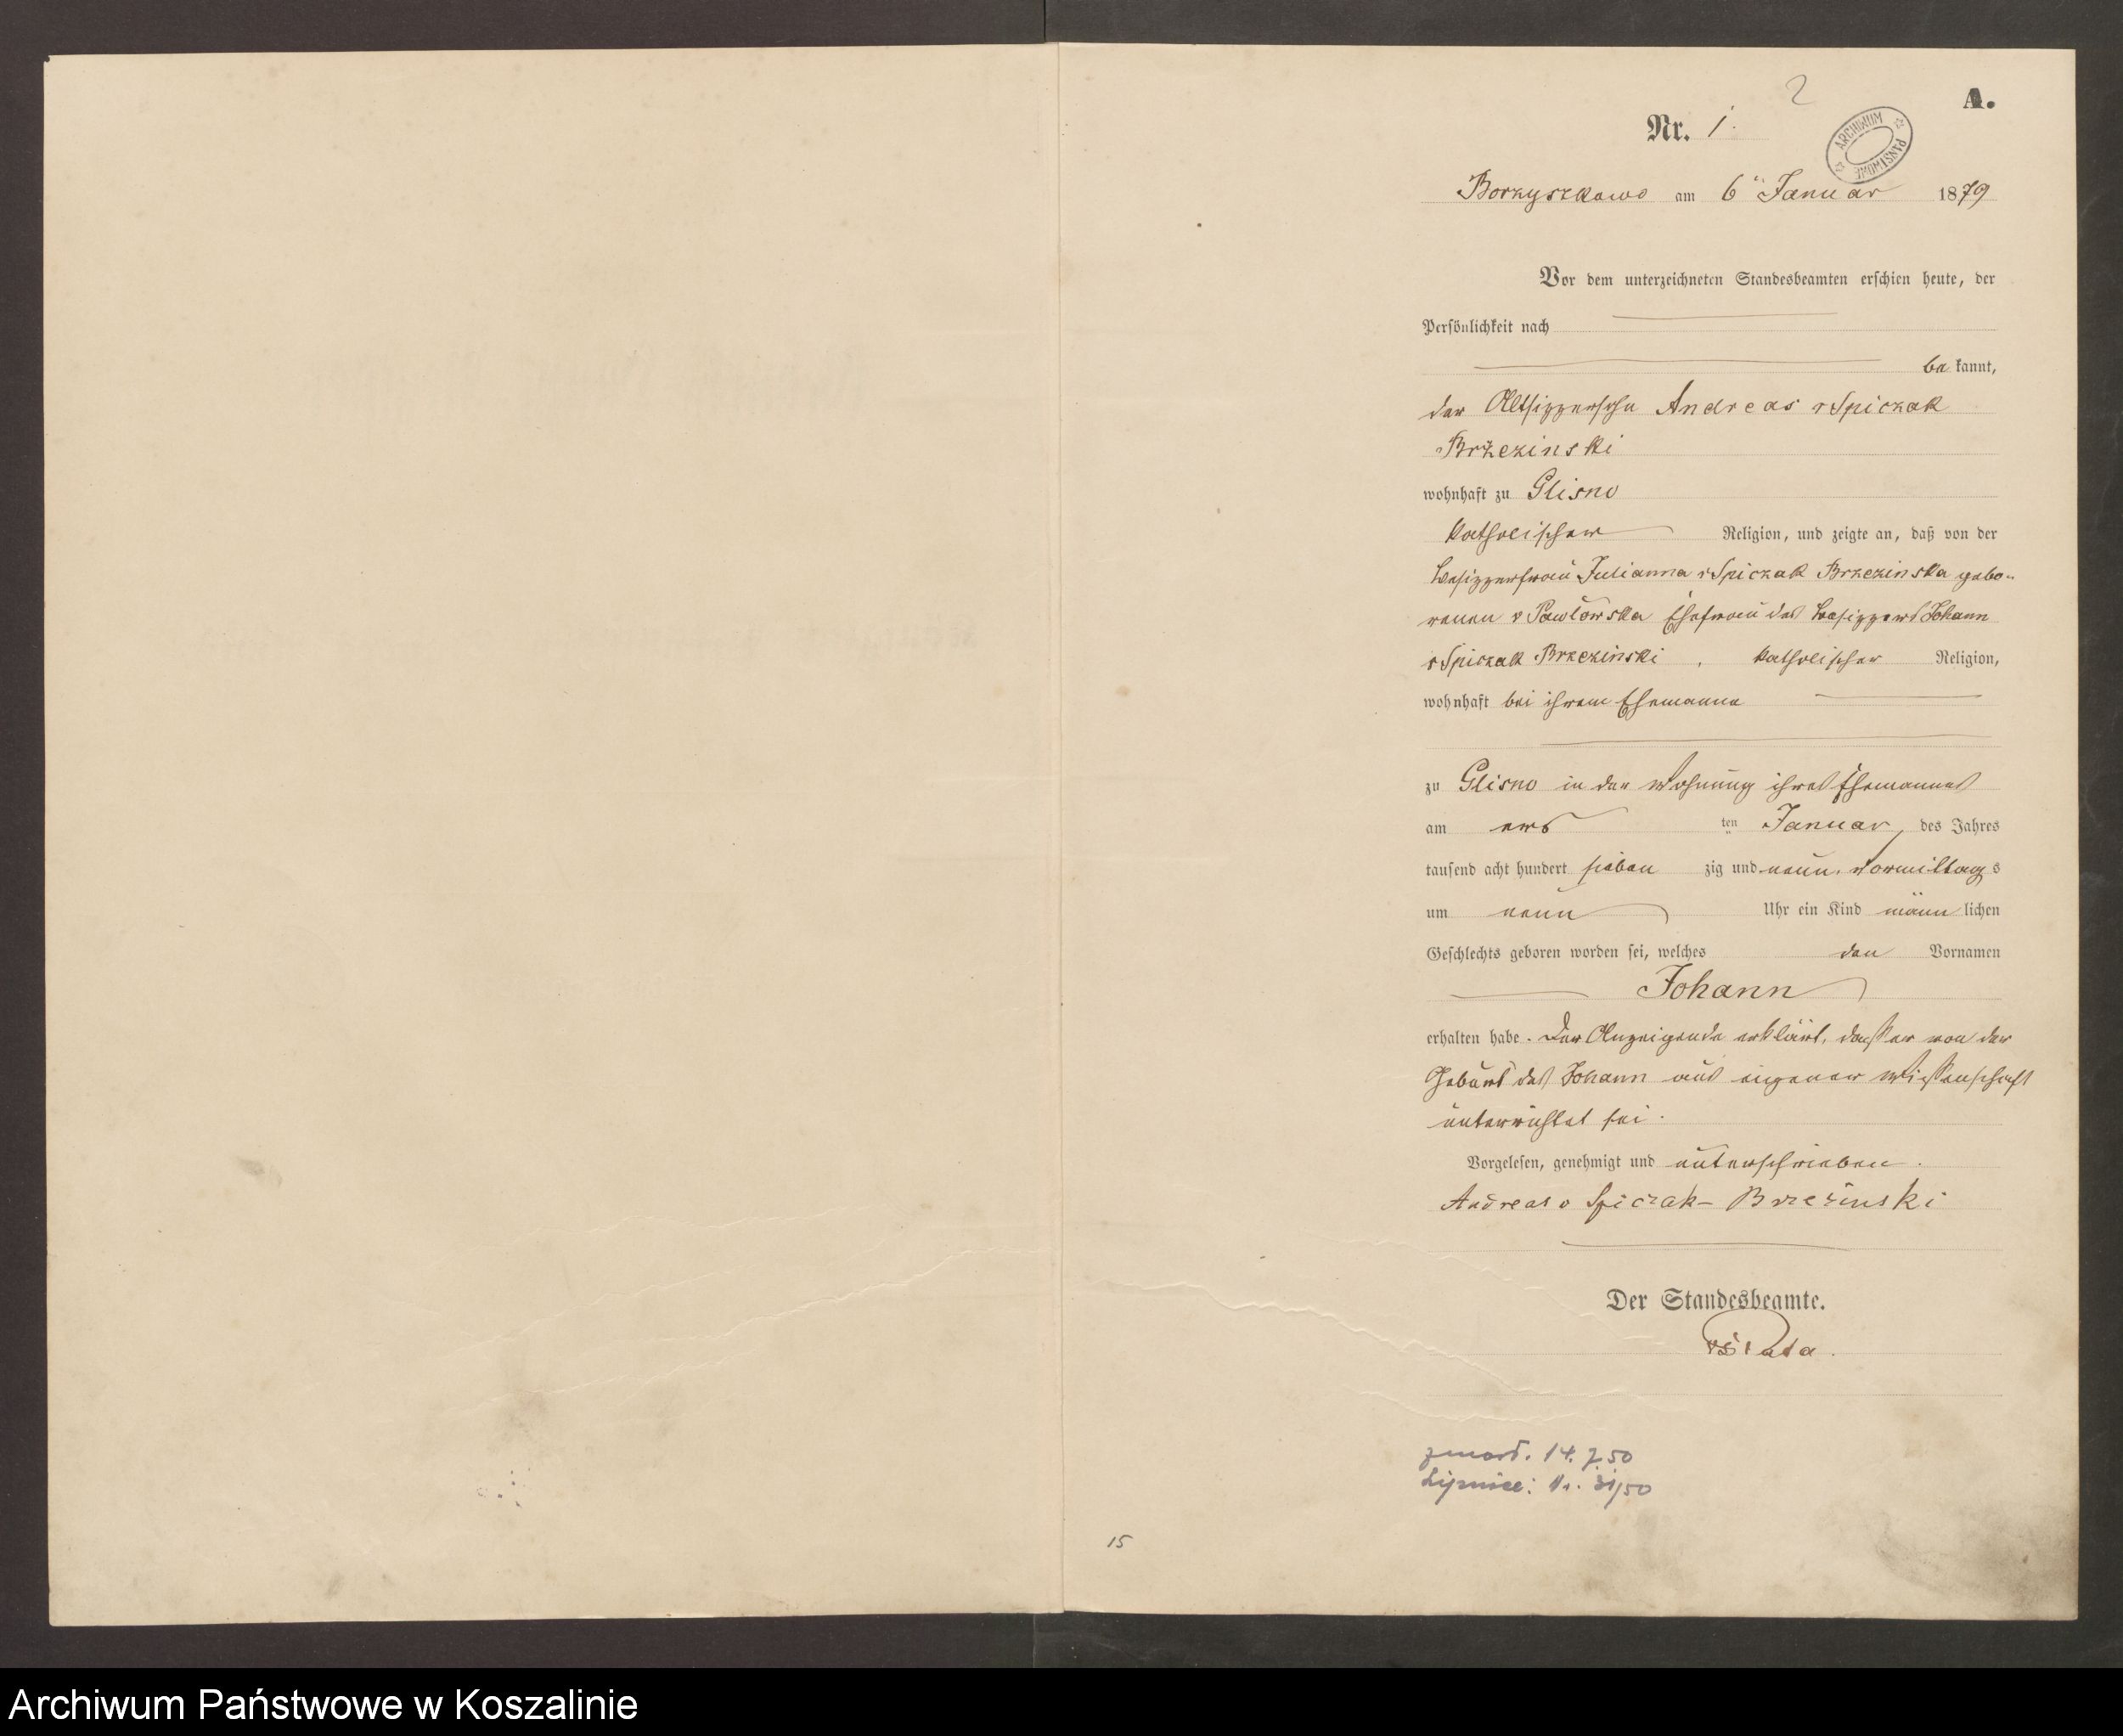 2
A.
Nr. 1.
ARCHIWUM PAŃSTWOWE
Borzyszkowo am 6ten Januar 1879
Vor dem unterzeichneten Standesbeamten erschien heute, der
Persönlichkeit nach
bekannt,
der Altsitzersohn Andreas v Spiczak
Brzezinski
wohnhaft zu Glisno
katholischer Religion, und zeigte an, daß von der
Besitzerfrau Julianna v Spiczak Brzezinska gebo-
renen v Pawlowska Ehefrau des Besitzers Johann
v Spiczak Brzezinski, katholischer Religion,
wohnhaft bei ihrem Ehemanne
zu Glisno in der Wohnung ihres Ehemannes
am ersten Januar, des Jahres
tausend acht hundert siebenzig und neun, Vormittags
um neun Uhr ein Kind männlichen
Geschlechts geboren worden sei, welches den Vornamen
Johann
erhalten habe. Der Anzeigende erklärt, dass er von der
Geburt des Johann aus eigener Wissenschaft
unterrichtet sei.
Vorgelesen, genehmigt und unterschrieben.
Andreas v Spiczak-Brzezinski
Der Standesbeamte.
14. 7. 50
Lipnica: 31/50
15
Archiwum Państwowe w Koszalinie